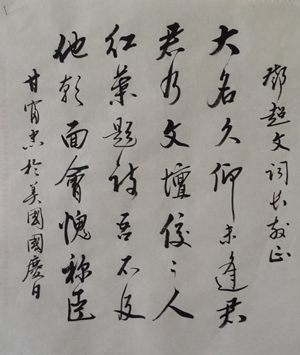 鄧超文詞长教正
大名久仰未逢君
君乃文壇佼々人
红葉題詩吾不及
他朝面會愧称臣
忠於美國國慶日